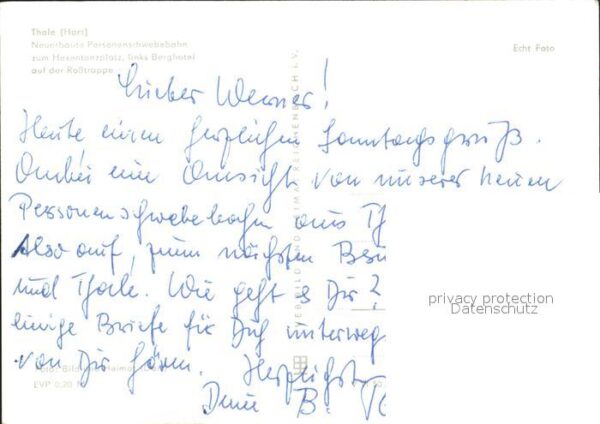 Thale (Harz)
Neuerbaute Personenschwebebahn
zum Hexentanzplatz, links Berghotel
auf der Roßtrappe
Echt Foto
Lieber Werner!
Heute einen herzlichen Sonntagsgruß.
Anbei eine Ansicht von unserer neuen
Personenschwebebahn aus Th
Also auf, zum nächsten
und Thale. Wie geht es Dir?
einige Briefe für Dich unterweg
von Dir hören. Herzlichst
Dein B.
VEB BILD UND HEIMAT REICHENBACH i. V.
EVP 0,20
privacy protection
Datenschutz